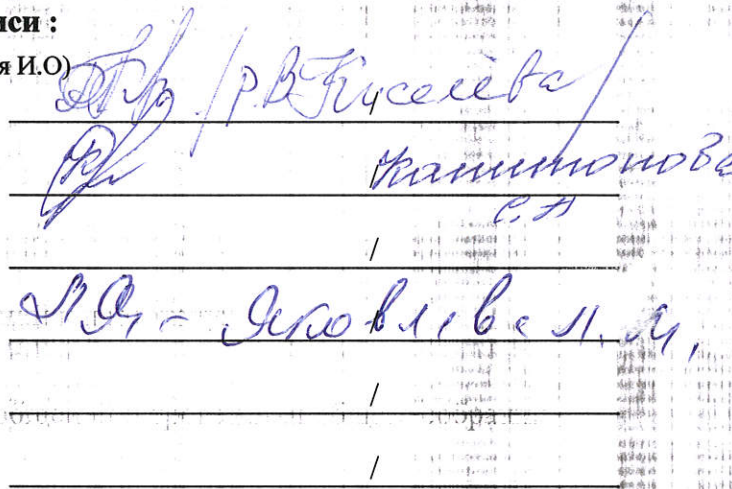 иси :
я И.О)
/ Р.В Киселёва /
/ Капитонова
С.А
/
Яковлева Л. М.
/
/